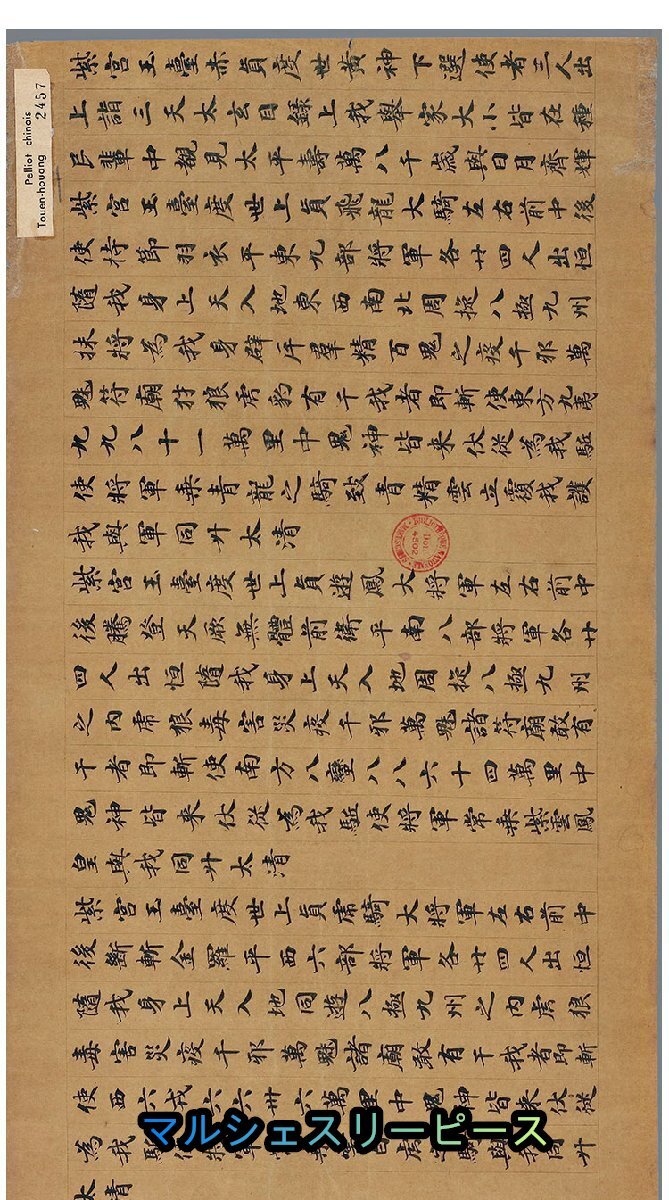 Pelliot chinois
Touen-houang 2457
紫宮玉臺赤真度世黃神下選使者三人出
上詣三天太玄目錄上我舉家大小皆在種
民輩中覩見太平壽萬八千歲與日月齊輝
紫宮玉臺度世上真飛龍大騎左右前中後
使持節羽衣平東九部將軍各廿四人出恒
隨我身上天入地東西南北周旋八極九州
將為我身辟斥羣精百鬼之疫千邪萬
魅符廟犲狼虎豹有干我者即斬使東方九夷
九九八十一萬里中鬼神皆來伏從為我駈
使將軍乘青龍之騎致青精雲立覆我護
我與軍同升太清
紫宮玉臺度世上真遊鳳大將軍左右前中
後騰登天厥無體前衛平南八部將軍各廿
四人出恒隨我身上天入地周旋八極九州
之內虎狼毒害災疫千邪萬魅諸符廟敢有
干者即斬使南方八蠻八八六十四萬里中
鬼神皆來伏從為我駈使將軍常乘紫雲鳳
皇與我同升太清
紫宮玉臺度世上真虎騎大將軍左右前中
後斷斬金羅平西六部將軍各廿四人出恒
隨我身上天入地同遊八極九州之內虎狼
毒害災疫千邪萬魅諸廟敢有干我者即斬
使西六戎六六卅六萬里中鬼神皆來伏從
為我
太清
マルシェスリーピース